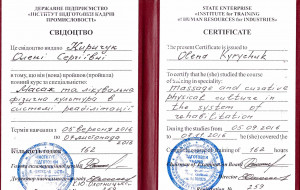 ДЕРЖАВНЕ ПІДПРИЄМСТВО
«ІНСТИТУТ ПІДГОТОВКИ КАДРІВ
ПРОМИСЛОВОСТІ»
СВІДОЦТВО
Це свідоцтво видано Киричук
Олені Сергіївні
в тому, що він (вона)
повний курс за спеціальністю:
Масаж та лікувальна
фізична культура в
системі реабілітації
Термін навчання з 05 вересня 2016
162
STATE ENTERPRISE
«INSTITUTE for TRAINING
of HUMAN RESOURCES for INDUSTRIES»
CERTIFICATE
The present Certificate is issued to
Olena Kyrychuk
To certify that he (she) studied the course
of training in speciality:
massage and curative
physical culture in
the system of
rehabilitation
During the studies from 05.09.2016
162 hours
№ 259